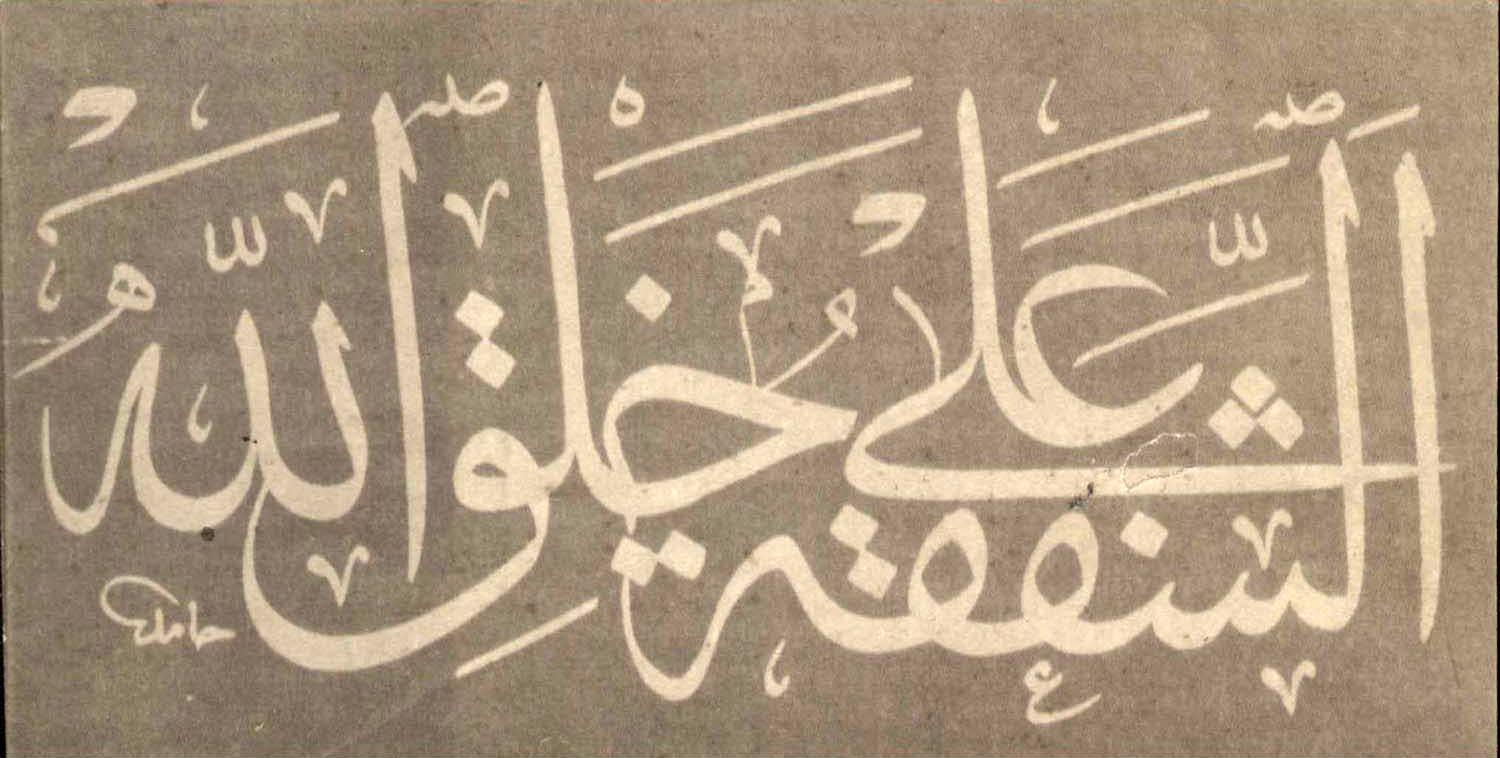 الشفقة على خلق الله
حامد